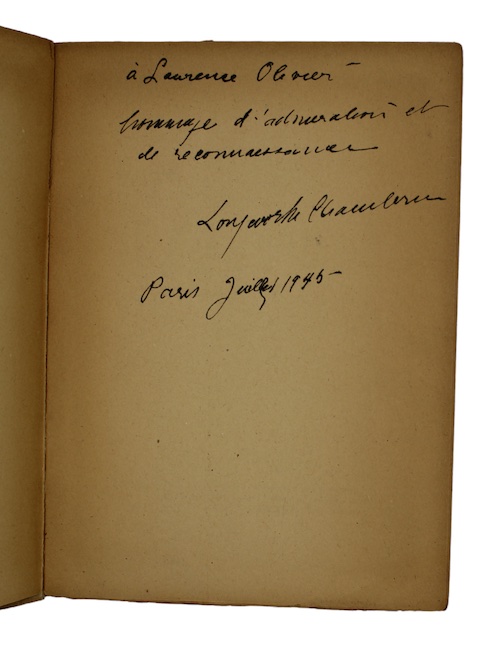 à Laurence Olivier
hommage d'admiration et
de reconnaissance
Longworth Chambrun
Paris Juillet 1945